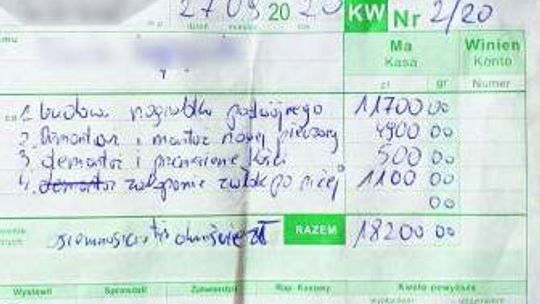 27 09 20 20 KW Nr 2/20
dzień miesiąc rok
Ma Winien
Kasa Konto
zł gr Numer
za 1. budowa nagrobka podwójnego 11700 00
2. Demontaż i montaż nowej pieczary 4900 00
3. demontaż i przeniesienie kości 500 00
4. demontaż zakopanie zwłok po niżej 1100 00
00
osiemnaście tyś dwieście zł RAZEM 18200 00
Wystawił Sprawdził Zatwierdził Rap. Kasowy Kwotę powyższą